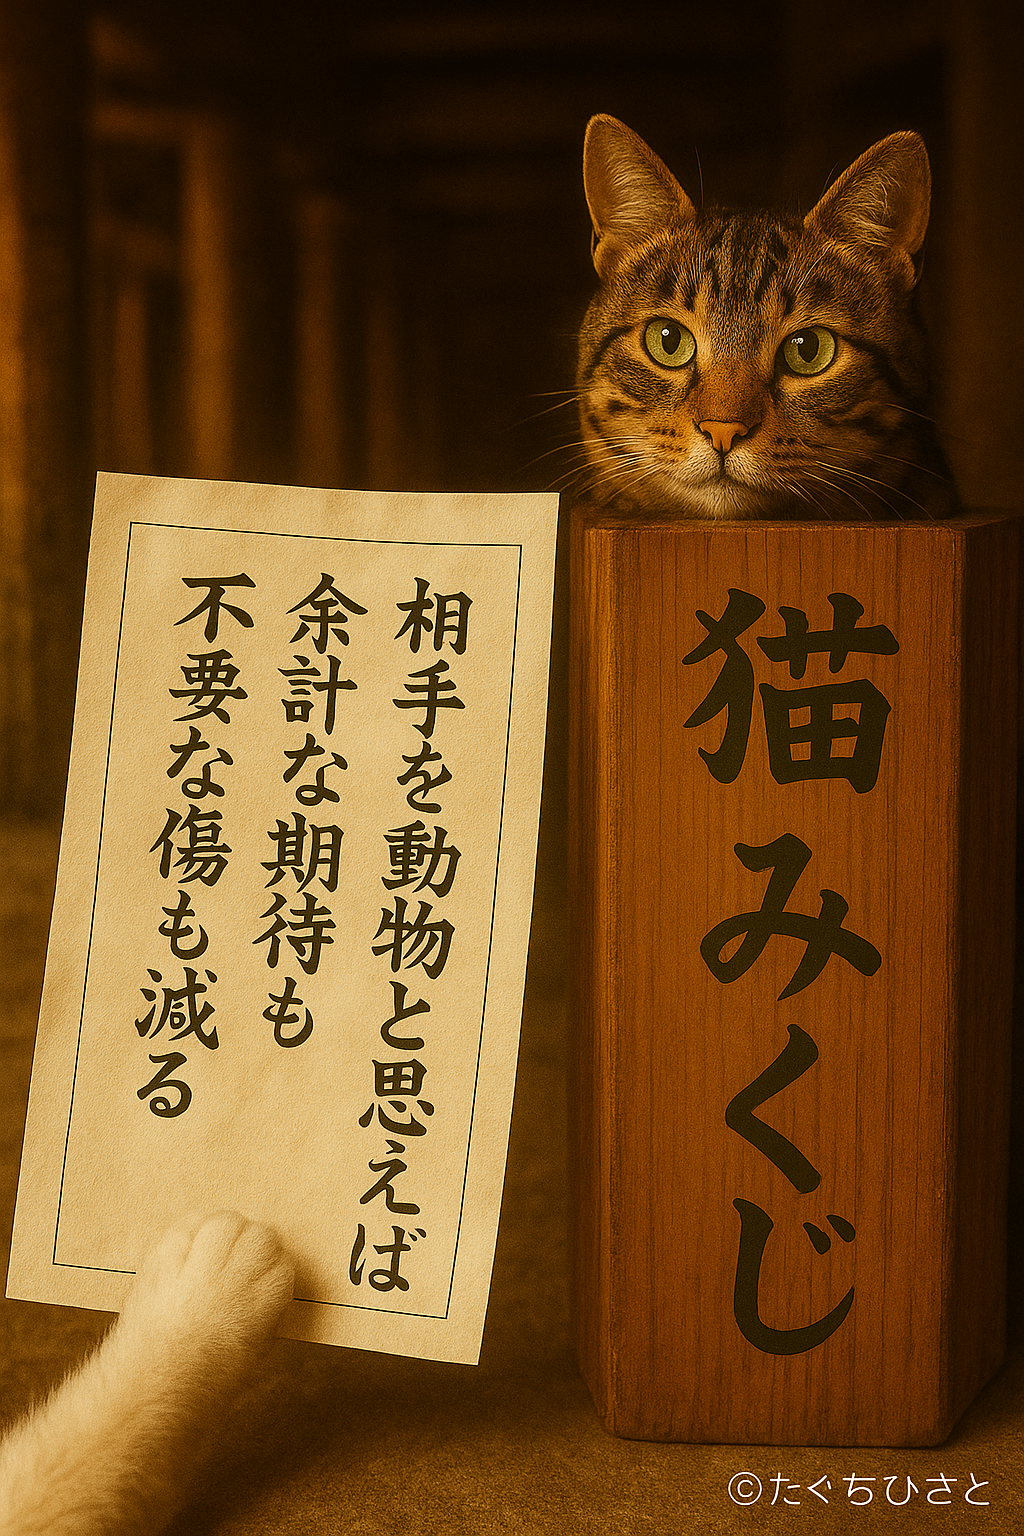 相手を動物と思えば
余計な期待も
不要な傷も減る
猫みくじ
©たぐちひさと